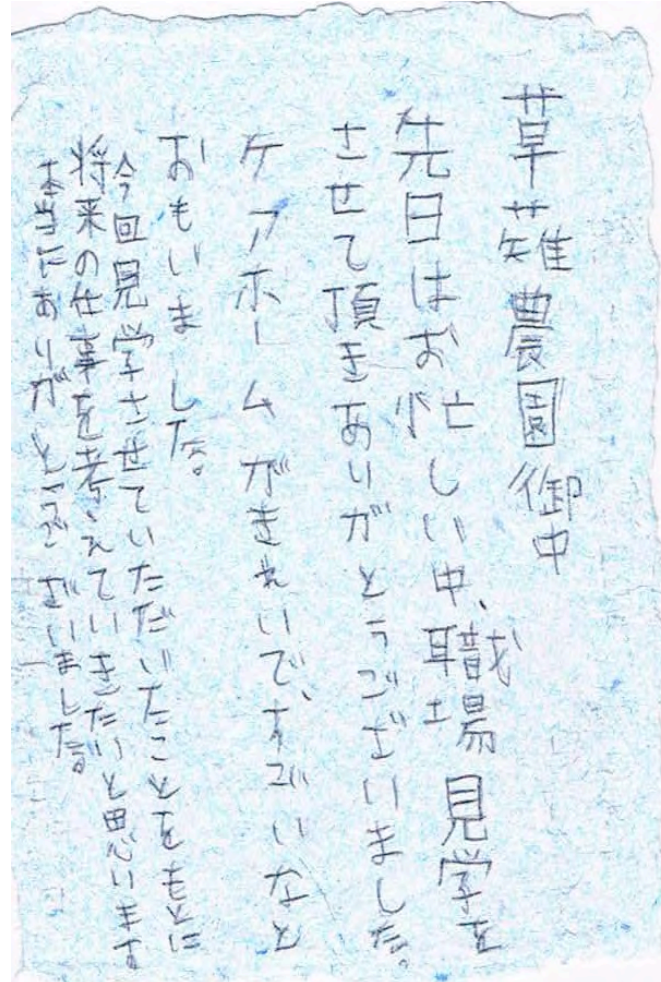 草薙農園御中
先日はお忙しい中、職場見学を
させて頂きありがとうございました。
ケアホームがきれいで、すごいなと
おもいました。
今回見学させていただいたことをもとに
将来の仕事を考えていきたいと思います
本当にありがとうございました。